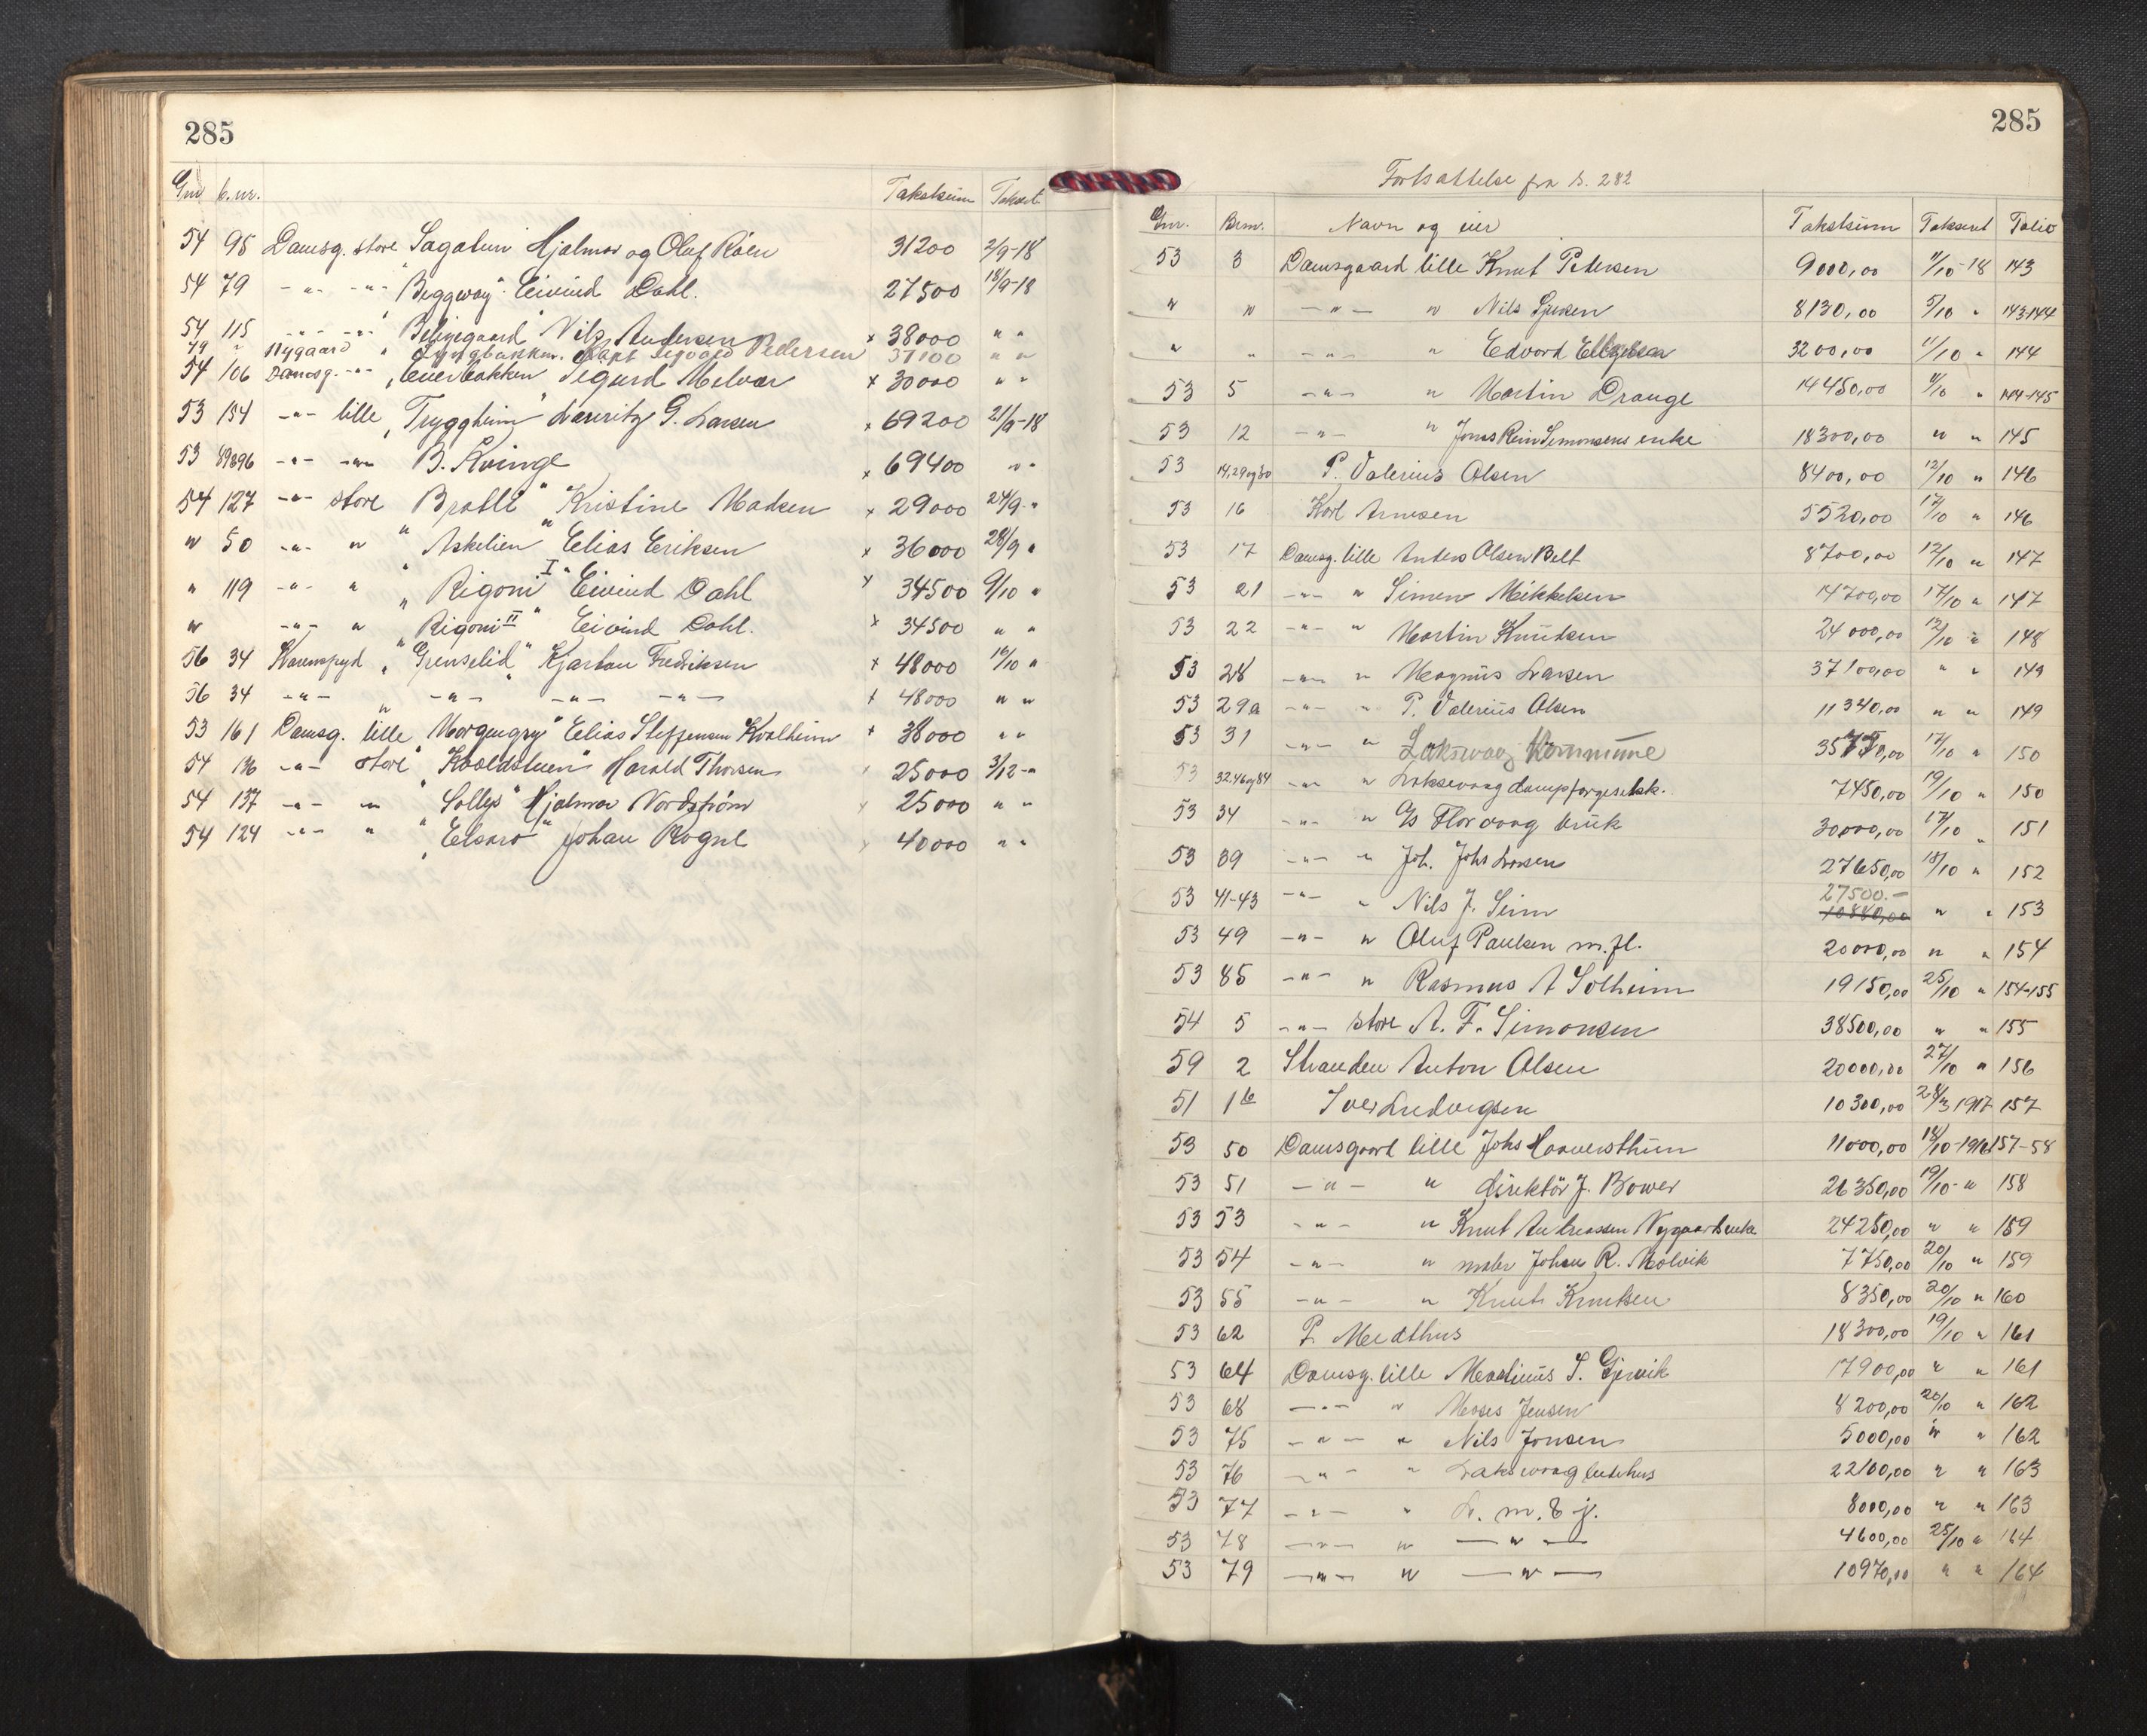 285
Gnr b.nr. Taksksum Taksert
54 95 Damsg. store "Sagatun" Hjalmar og Oluf Röen 31200 2/9-18
54 79 -"- -"- "Beggway" Eivind Dahl. 27500 18/9-18
54 115 -"- -"- Nils Andersen x 38000 " "
79 " Nygaard " Lyngbakken. Kapt Sigvard Pedersen 37100 " "
54 106 Damsg. -"- Sigurd Melvær x 30000 " "
53 154 -"- lille "Tryggheim" Lauritz G. Larsen x 69200 21/9-18
53 89&96 -"- -"- B. Kvinge x 69400 " "
54 127 -"- store "Bratli" Kristine Madsen x 29000 24/9 "
" 50 -"- " "Askelien" Elias Eriksen x 36000 28/9 "
" 119 -"- " "Rigoni I" Eivind Dahl x 34500 9/10 "
" -"- " "Rigoni II" Eivind Dahl. x 34500 " "
56 34 "Grenselid" Kjartan Fredriksen x 48000 16/10 "
56 34 -"- " -"- -"- -"- x 48000 " "
53 161 Damsg. lille "Morgengry" Elias Steffensen Kvalheim x 38000 " "
54 136 -"- store Harald Thorsen x 25000 3/12 -"
54 137 -"- -"- "Sollys" Hjalmar Nordstrøm x 25000 " "
54 124 -"- " "Elsaro" Johan Rogne x 40000 " "
285
Fortsættelse fra s. 282
Gnr. Brnr. Navn og eier Taksksum Taksert Folio
53 3 Damsgaard lille Knut Pedersen 9000,00 11/10-18 143
" " -"- " Nils 8130,00 5/10 " 143-144
" " -"- " Edvard Ellingsen 3200,00 11/10 " 144
53 5 -"- " Martin Drange 14450,00 11/10 " 144-145
53 12 -"- " Jonas Rein Simonsens enke 18300,00 " " 145
53 14,29og30 P. Valerius Olsen 8400,00 12/10 " 146
53 16 Karl Arnesen 5520,00 17/10 " 146
53 17 Damsg. lille Anders Olsen Belt 8700,00 12/10 " 147
53 21 -"- " Simen Mikkelsen 14700,00 17/10 " 147
53 22 -"- " Martin Knudsen 24000,00 12/10 " 148
53 28 -"- " Magnus Larsen 37100,00 " " 149
53 29a -"- " P. Valerius Olsen 11340,00 " " 149
53 31 -"- " Laksevaag Kommune 17/10 " 150
53 32.46og84 -"- " Laksevaag dampfærgeselsk. 7450,00 19/10 " 150
53 34 -"- " A/s Florvaag bruk 30000,00 17/10 " 151
53 39 -"- " Joh. Johs Larsen 27650,00 18/10 " 152
27500.-
53 41-43 -"- " Nils J. Seim 10880,00 " " 153
53 49 -"- " Oluf Paulsen m.fl. 20000,00 " " 154
53 85 -"- " Rasmus A Solheim 19150,00 25/10 " 154-155
54 5 -"- store A. F. Simonsen 38500,00 " " 155
59 2 Stranden Anton Olsen 20000,00 27/10 " 156
51 1b Iver Ludvigsen 10300,00 28/3 1917 157
53 50 Damsgaard lille Johs 11000,00 18/10-1916 157-58
53 51 -"- " direktör J. Bower 26350,00 19/10-" 158
53 53 -"- " Knut Andreassen Nygaards enke 24250,00 " " 159
53 54 -"- " maler Johan R. Molvik 7750,00 20/10 " 159
53 55 -"- " Knut Knutsen 8350,00 20/10 " 160
53 62 P. Medthus 18300,00 19/10 " 161
53 64 Damsg. lille Martinus S. Gjervik 17900,00 " " 161
53 68 -"- " Moses Jensen 8200,00 20/10 " 162
53 75 -"- " Nils Jonsen 5000,00 " " 162
53 76 -"- " Laksevaag bedehus 22100,00 " " 163
53 77 -"- " L. m. & j. 8000,00 " " 163
53 78 -"- " -"- 4600,00 25/10 " 164
53 79 -"- " -"- 10970,00 " " 164